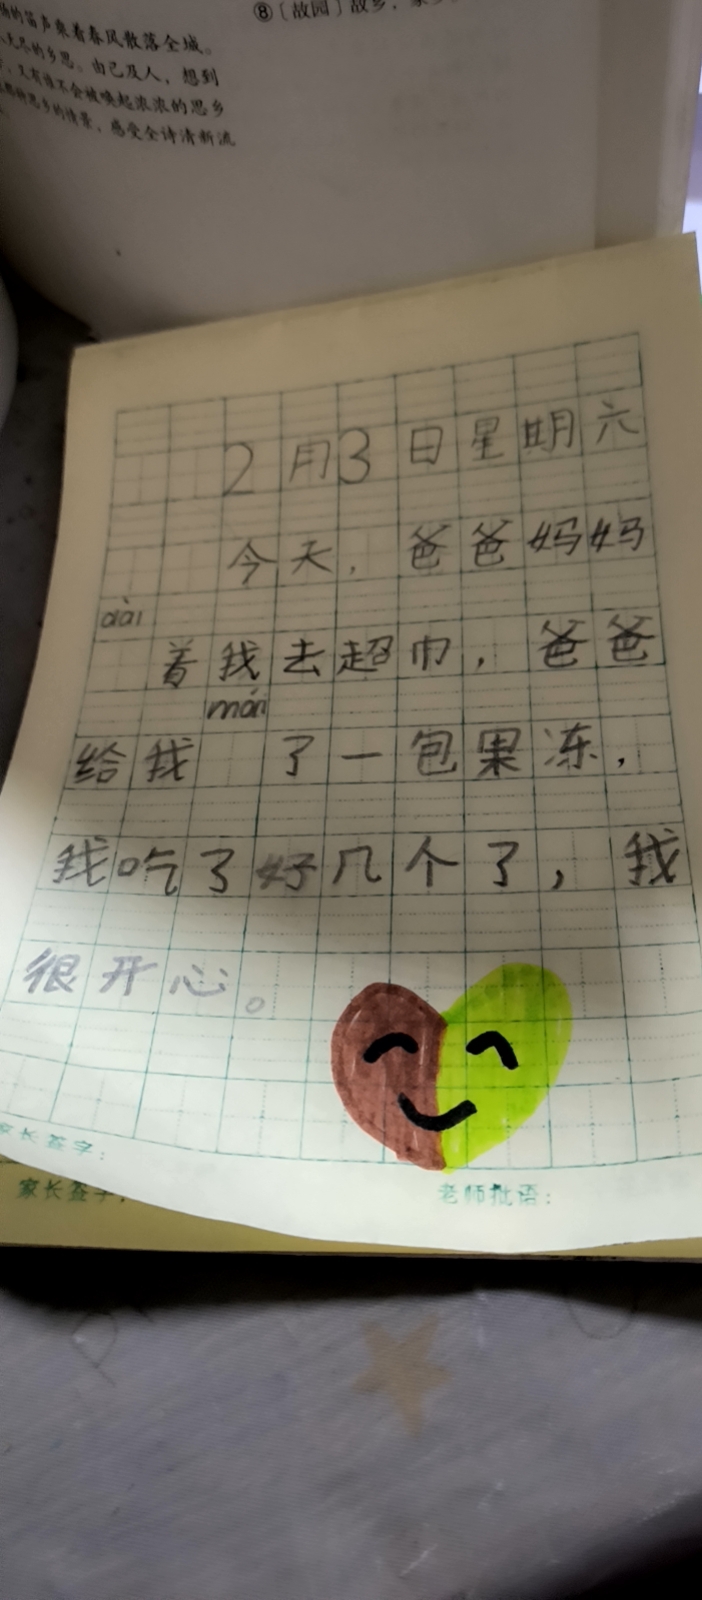 ⑧〔故园〕故乡，
的笛声乘着春风散落全城。
无尽的乡思。由己及人，想到
又有谁不会被唤起浓浓的思乡
思乡的情景，感受全诗清新流
2月3日星期六
今天，爸爸妈妈
dài
着我去超市，爸爸
mǎi
给我 了一包果冻，
我吃了好几个了，我
很开心。
家长签字：
家长签字：
老师批语：